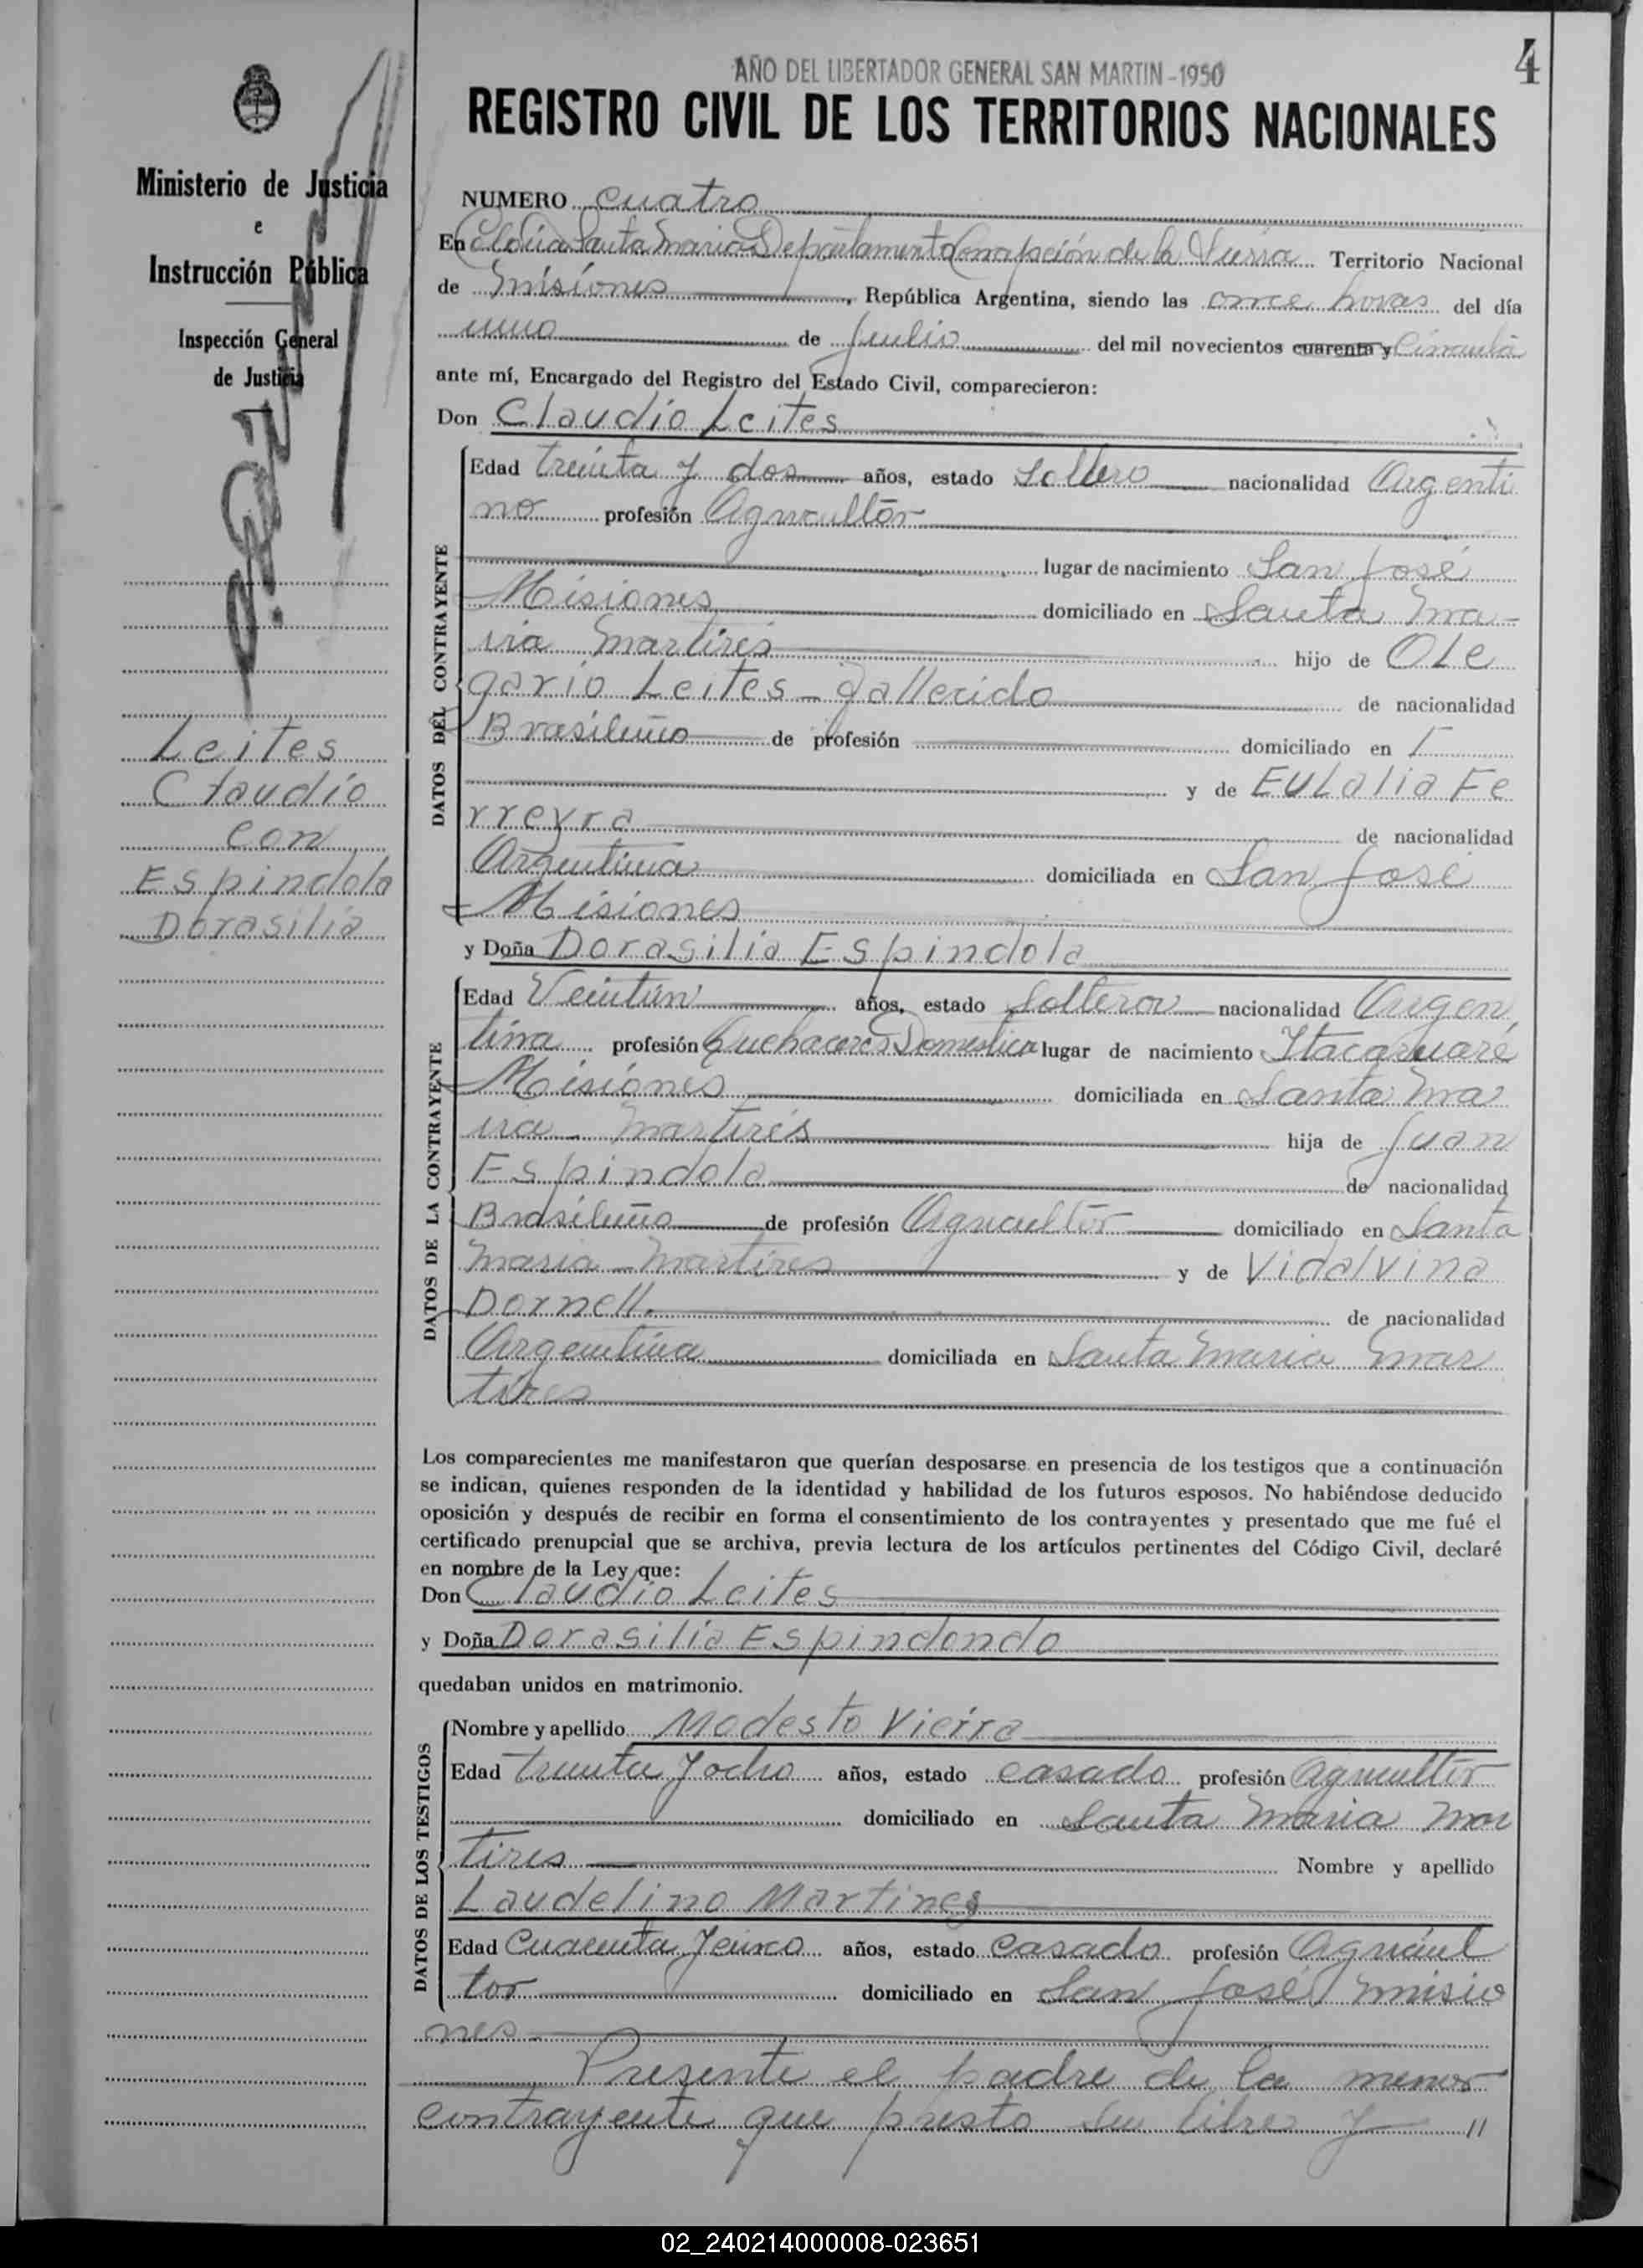 4
AÑO DEL LIBERTADOR GENERAL SAN MARTIN - 1950
REGISTRO CIVIL DE LOS TERRITORIOS NACIONALES
Ministerio de Justicia
e
Instrucción Pública
Inspección General
de Justicia
Leites
Claudio
con
Espindola
Dorasilia
NUMERO cuatro
En Santa Maria Departamento Concepción de la Sierra Territorio Nacional
de Misiones, República Argentina, siendo las once horas del día
uno de Julio del mil novecientos cuarenta y Cincuenta
ante mí, Encargado del Registro del Estado Civil, comparecieron:
Don Claudio Leites
DATOS DEL CONTRAYENTE
Edad treinta y dos años, estado soltero nacionalidad Argenti
no profesión Agricultor
lugar de nacimiento San José
Misiones domiciliado en Santa Ma-
ria Martires hijo de Ole
gario Leites - fallecido de nacionalidad
Brasileño de profesión domiciliado en
y de Eulalia Fe
rreyra de nacionalidad
Argentina domiciliada en San José
Misiones
y Doña Dorasilia Espindola
DATOS DE LA CONTRAYENTE
Edad Veintun años, estado Soltera nacionalidad Argen
tina profesión Quehaceres Domestica lugar de nacimiento Itacaruaré
Misiones domiciliada en Santa Ma
ria - Martires hija de Juan
Espindola de nacionalidad
Brasileño de profesión Agricultor domiciliado en Santa
Maria - Martires y de Vidalvina
Dornell. de nacionalidad
Argentina domiciliada en Santa Maria Mar
tires
Los comparecientes me manifestaron que querían desposarse en presencia de los testigos que a continuación
se indican, quienes responden de la identidad y habilidad de los futuros esposos. No habiéndose deducido
oposición y después de recibir en forma el consentimiento de los contrayentes y presentado que me fué el
certificado prenupcial que se archiva, previa lectura de los artículos pertinentes del Código Civil, declaré
en nombre de la Ley que:
Don Claudio Leites
y Doña Dorasilia Espindondo
quedaban unidos en matrimonio.
DATOS DE LOS TESTIGOS
Nombre y apellido Modesto Vieira
Edad treinta y ocho años, estado casado profesión agricultor
domiciliado en Santa Maria Mar
tires Nombre y apellido
Laudelino Martines
Edad Cuarenta y cinco años, estado casado profesión Agricul
tor domiciliado en San José Misio
nes
Presente el padre de la menor
contrayente que presto su libre y "
02_240214000008-023651